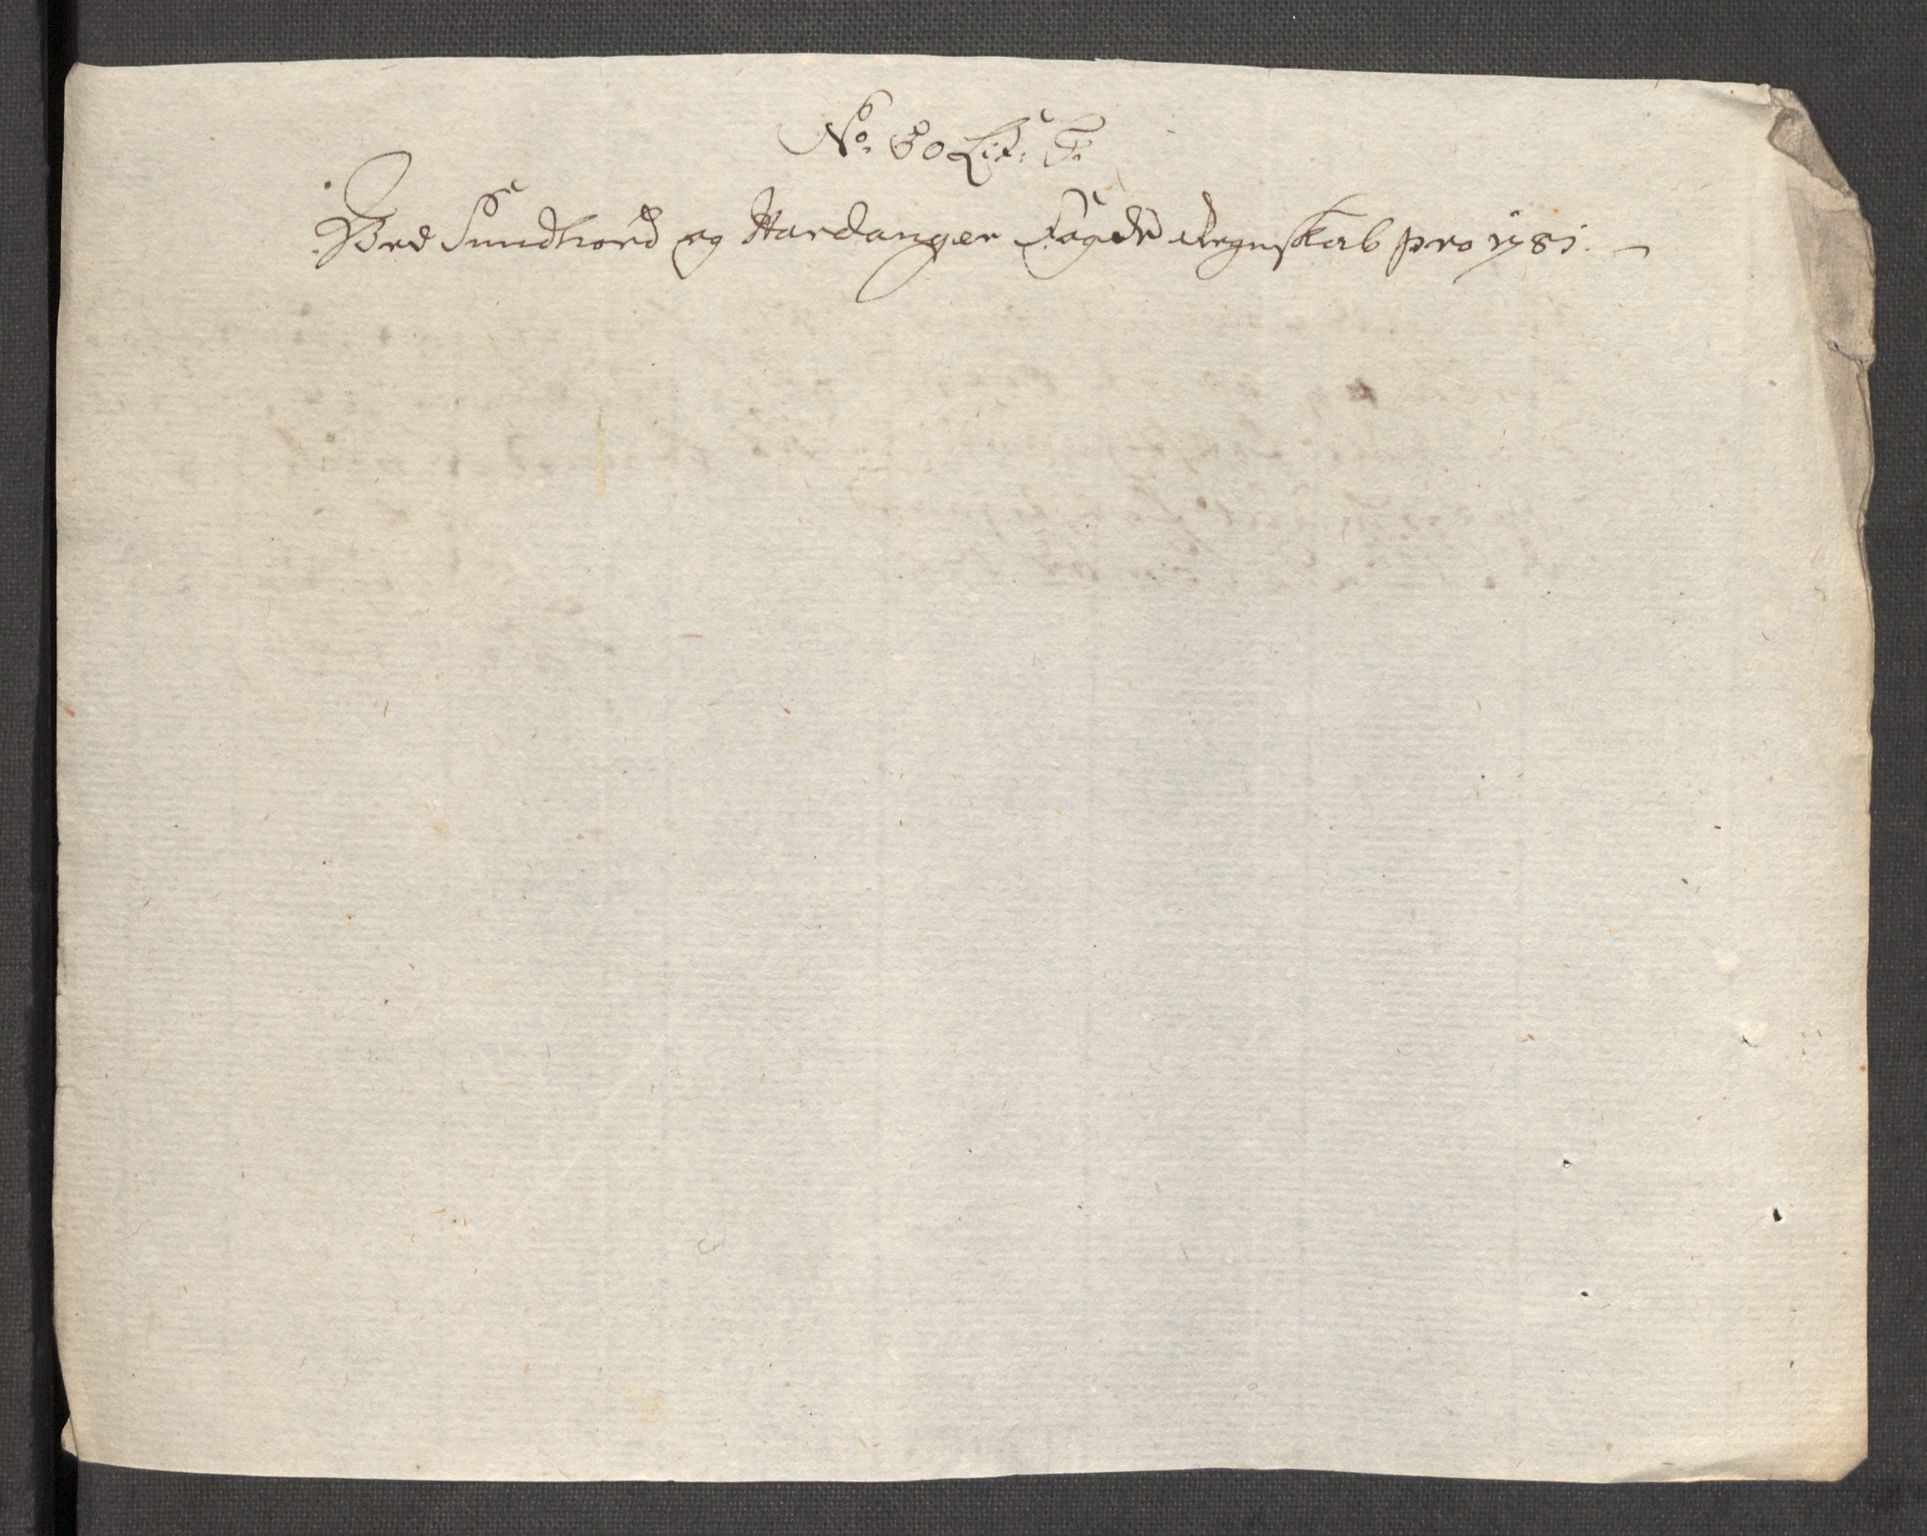 No. 80 Lit: F.
Ved Sundhord og Hardanger Fogde Regnskab pro 1781. –